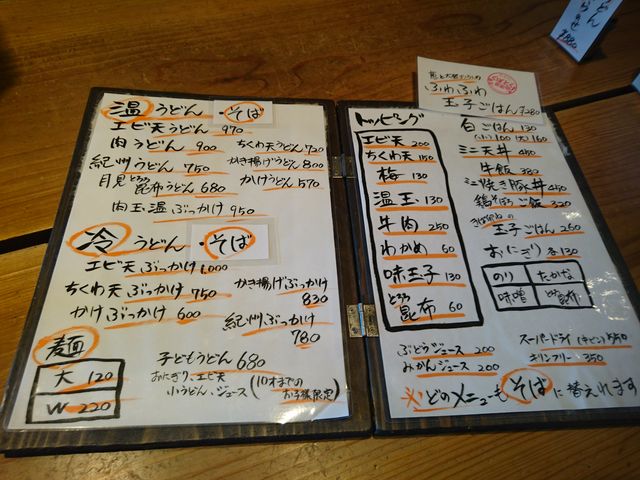 温 うどん ・そば
エビ天うどん 970
肉うどん 900
ちくわ天うどん 720
紀州うどん 750
かき揚げうどん 800
月見とろろ昆布うどん 680
かけうどん 570
肉玉温ぶっかけ 950
冷 うどん ・そば
エビ天ぶっかけ 1,000
ちくわ天ぶっかけ 750
かき揚げぶっかけ 830
かけぶっかけ 600
紀州ぶっかけ 780
麺
大 120
W 220
子どもうどん 680
おにぎり、エビ天
小うどん、ジュース
(10才までのお子様限定)
トッピング
エビ天 200
ちくわ天 150
梅 130
温玉 130
牛肉 250
わかめ 60
味玉子 130
とろろ昆布 60
ぶどうジュース 200
みかんジュース 200
ふわふわ
玉子ごはん ¥280
白ごはん 130
(小)100 (大)160
ミニ天丼 450
牛飯 380
ミニ焼き豚丼 450
鶏そぼろご飯 320
玉子ごはん 260
おにぎり 各130
のり
たかな
味噌
昆布
スーパードライ
キリンフリー 350
※どのメニューもそばに替えれます
うどん
¥880